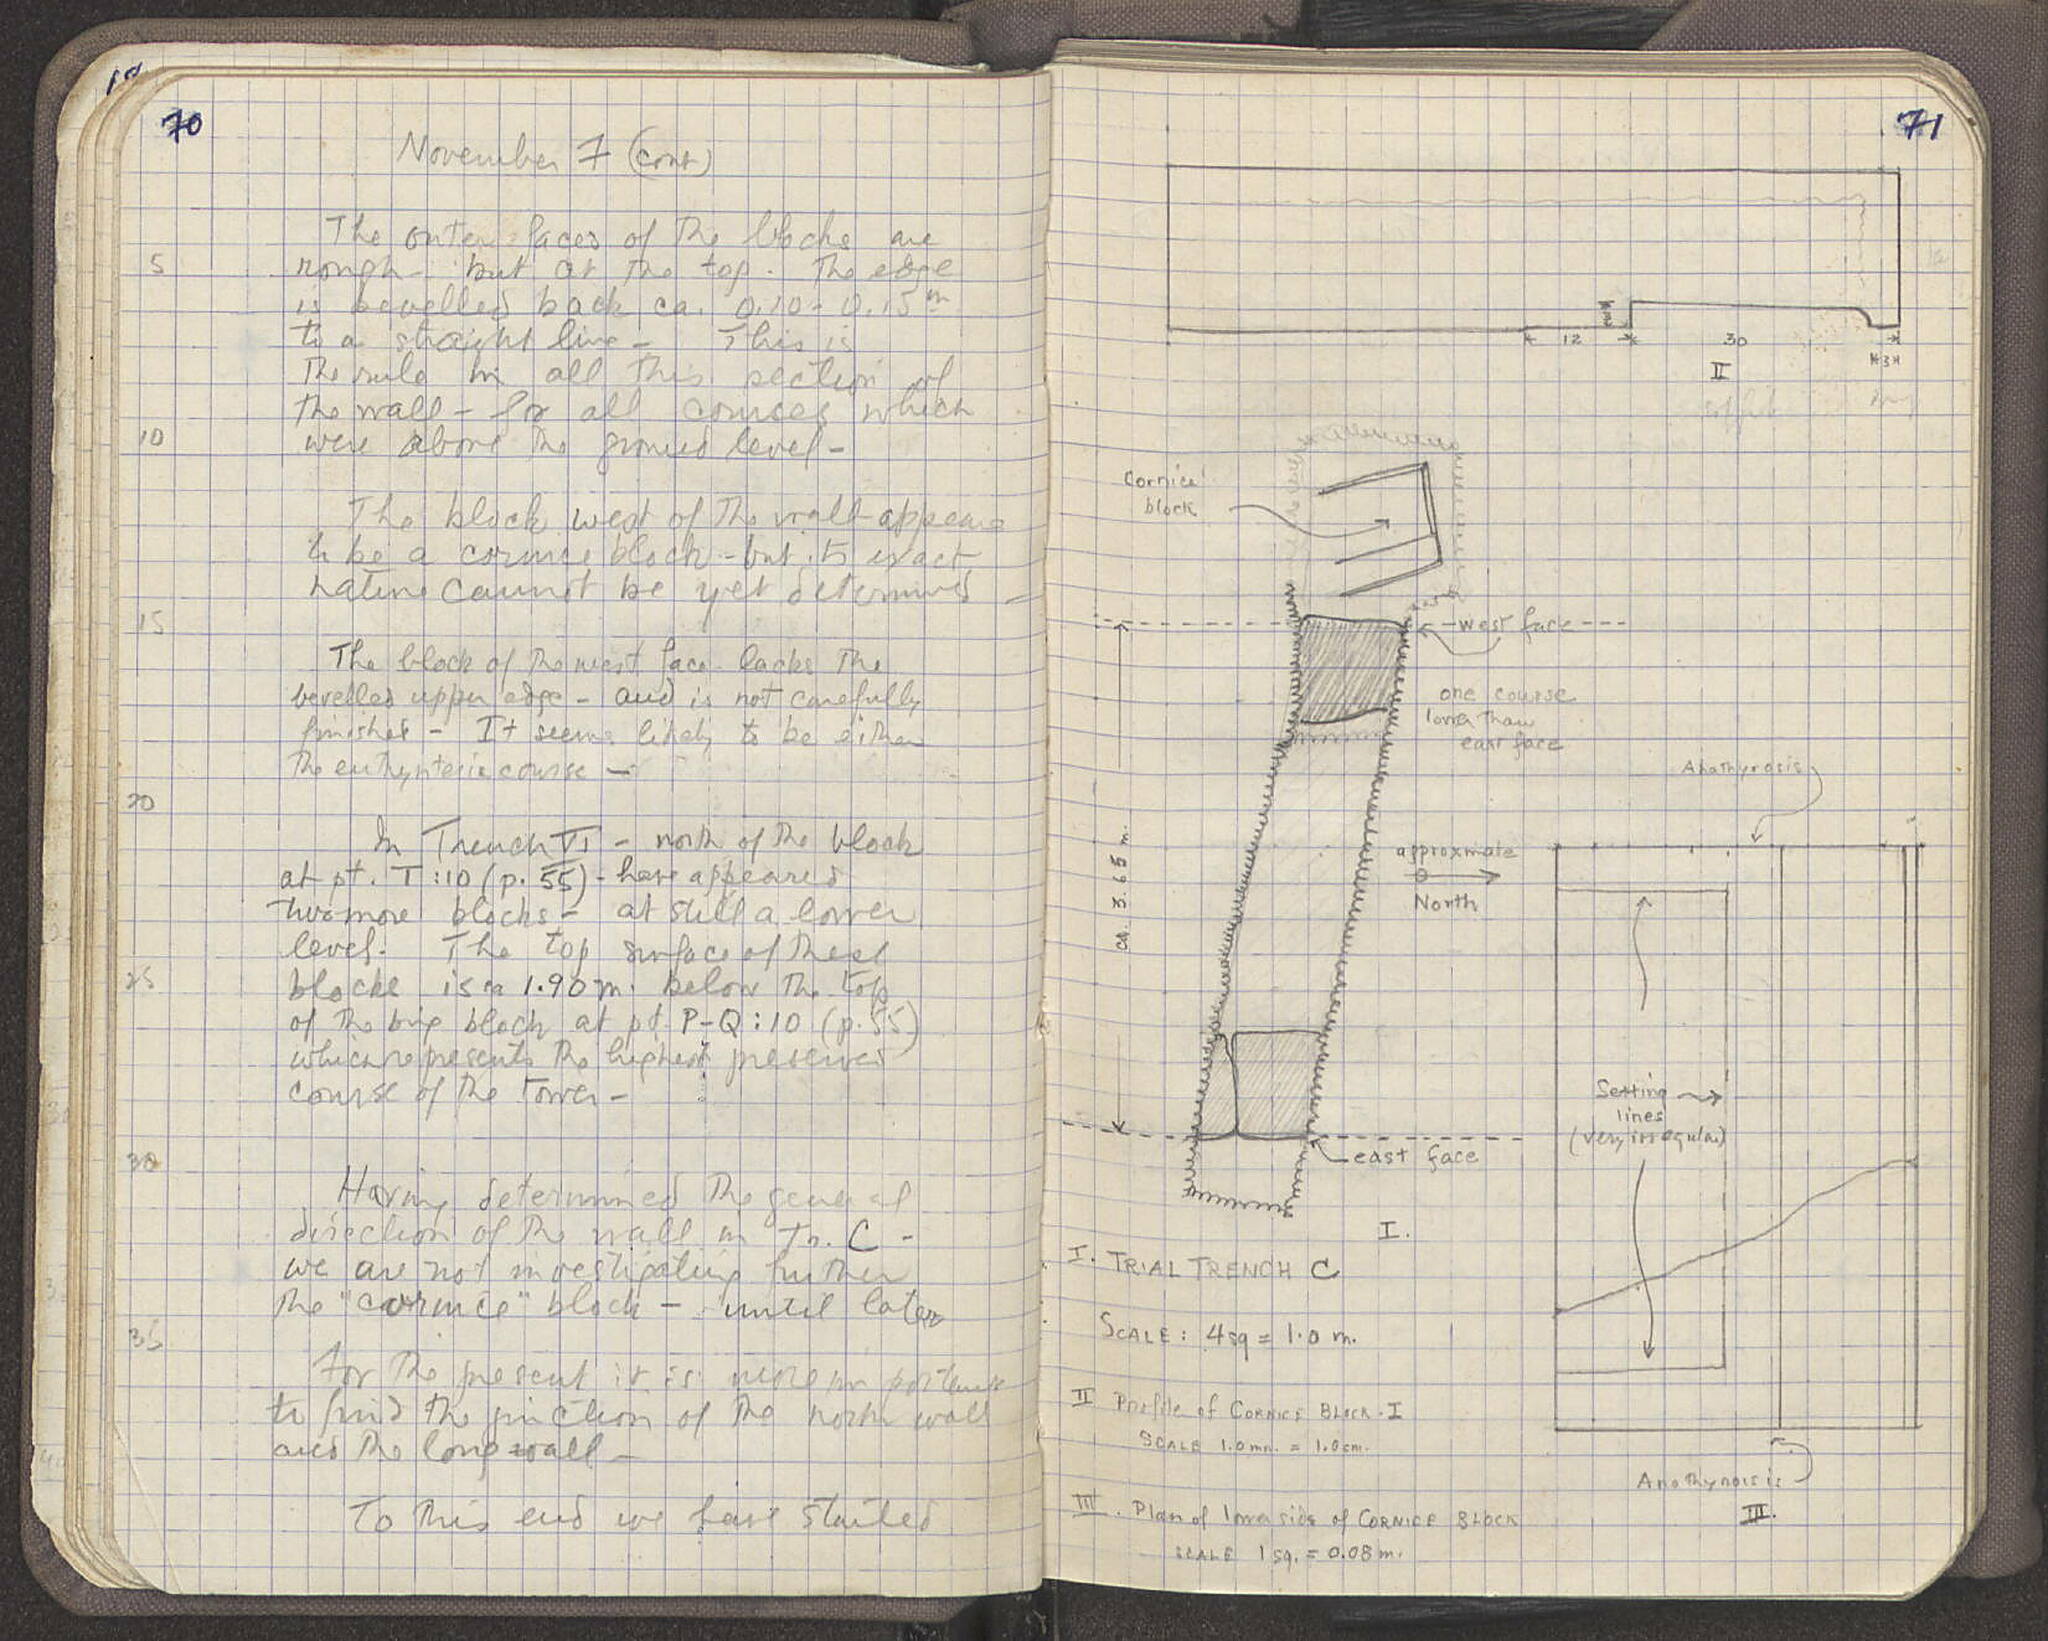 70
November 7 (cont)
The outer faces of the blocks are
5
rough - but at the top. The edge
is bevelled back ca. 0.10 - 0.15 m
to a straight line - This is
the rule in all this section of
the wall - for all courses which
10
were above the ground level -
The block west of the wall appears
to be a cornice block - but its exact
nature cannot be yet determined -
15
The block of the west face lacks the
bevelled upper edge - and is not carefully
finished - It seems likely to be either
the euthynteria course -
20
In Trench VI - north of the block
at pt. T:10 (p. 55) - have appeared
two more blocks - at still a lower
level. The top surface of these
25
blocks is ca 1.90 m. below the top
of the big block at pt. P-Q:10 (p. 55)
which represents the highest preserved
course of the tower -
30
Having determined the general
direction of the wall in Tr. C -
we are not investigating further
the "cornice" block - until later
35
For the present it is more important
to find the junction of the north wall
and the long wall -
To this end we have started
71
12
30
3
II
soffit
Cornice
block
west face
one course
lower than
east face
Anathyrosis
ca. 3.65 m.
approxmate
North
Setting
lines
(very irregular)
east face
I.
I. TRIAL TRENCH C
SCALE: 4 sq = 1.0 m.
II Profile of CORNICE BLOCK - I
SCALE 1.0 mm. = 1.0 cm.
Anathyrosis
III.
III. Plan of lower side of CORNICE BLOCK
SCALE 1 sq. = 0.08 m.